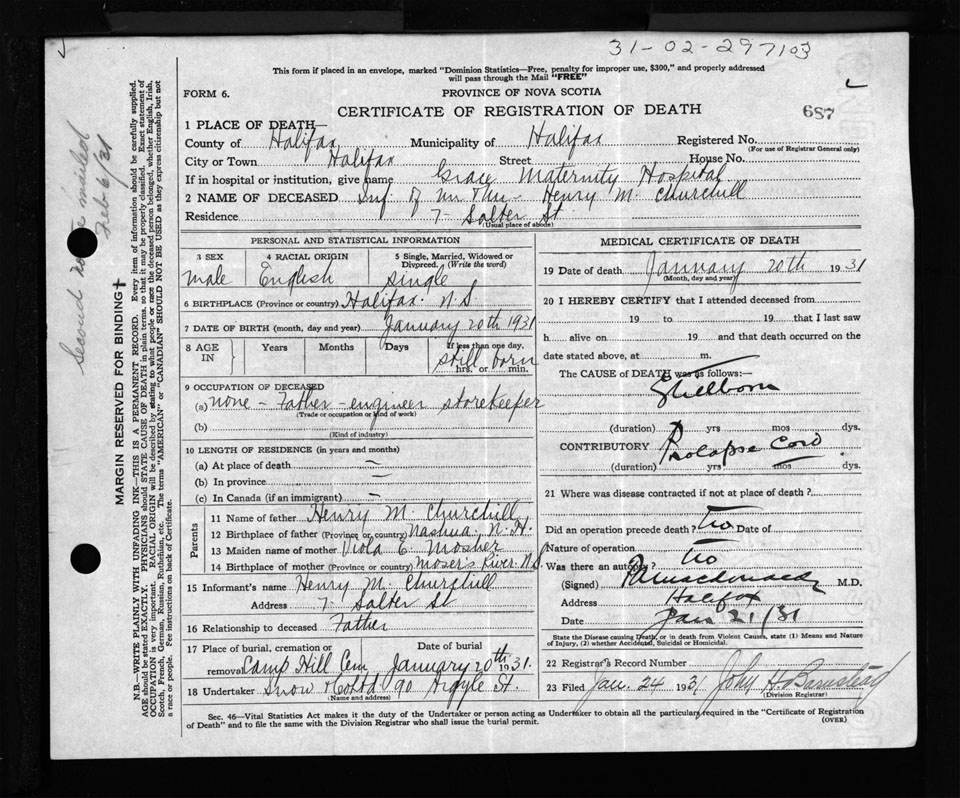 31-02-297103
This form if placed in an envelope, marked "Dominion Statistics—Free, penalty for improper use, $300," and properly addressed
will pass through the Mail "FREE"
FORM 6.
PROVINCE OF NOVA SCOTIA
CERTIFICATE OF REGISTRATION OF DEATH
687
1 PLACE OF DEATH—
County of Halifax Municipality of Halifax Registered No.
(For use of Registrar General only)
City or Town Halifax Street House No.
If in hospital or institution, give name Grace Maternity Hospital
2 NAME OF DECEASED Inf of Mr Mrs Henry M. Churchill
Residence 7 Salter St
(Usual place of abode)
PERSONAL AND STATISTICAL INFORMATION
3 SEX 4 RACIAL ORIGIN 5 Single, Married, Widowed or Divorced. (Write the word)
male English single
6 BIRTHPLACE (Province or country) Halifax. N.S.
7 DATE OF BIRTH (month, day and year) January 20th 1931
8 AGE IN Years Months Days If less than one day,
still born
hrs. or min.
9 OCCUPATION OF DECEASED
(a) none - Father - engineer storekeeper
(Trade or occupation or kind of work)
(b)
(Kind of industry)
10 LENGTH OF RESIDENCE (in years and months)
(a) At place of death —
(b) In province —
(c) In Canada (if an immigrant) —
Parents
11 Name of father Henry M. Churchill
12 Birthplace of father (Province or country) Nashua, N.H.
13 Maiden name of mother Viola E. Mosher
14 Birthplace of mother (Province or country) Mosers River N.S.
15 Informant's name Henry M. Churchill
Address 7 Salter St
16 Relationship to deceased Father
17 Place of burial, cremation or removal Camp Hill Cem Date of burial January 20th 1931.
18 Undertaker Snow & Co Ltd 90 Argyle St.
(Name and address)
MEDICAL CERTIFICATE OF DEATH
19 Date of death January 20th 1931
(Month, day and year)
20 I HEREBY CERTIFY that I attended deceased from
19 to 19 that I last saw
h alive on 19 and that death occurred on the
date stated above, at m.
The CAUSE of DEATH was as follows:—
Stillborn
(duration) yrs mos dys.
CONTRIBUTORY Prolapse Cord
(duration) yrs mos dys.
21 Where was disease contracted if not at place of death?
Did an operation precede death? No Date of
Nature of operation
Was there an autopsy? No
(Signed) M.D.
Address Halifax
Date Jan 21/31
State the Disease causing Death, or in death from Violent Causes, state (1) Means and Nature
of Injury, (2) whether Accidental, Suicidal or Homicidal.
22 Registrar's Record Number
23 Filed Jan. 24 1931 John H. Barnstead
(Division Registrar)
Sec. 46—Vital Statistics Act makes it the duty of the Undertaker or person acting as Undertaker to obtain all the particulars required in the "Certificate of Registration
of Death" and to file the same with the Division Registrar who shall issue the burial permit.
(OVER)
Second mailed
Feb 6/31
MARGIN RESERVED FOR BINDING
N.B.—WRITE PLAINLY WITH UNFADING INK—THIS IS A PERMANENT RECORD. Every item of information should be carefully supplied.
AGE should be stated EXACTLY. PHYSICIANS should STATE CAUSE OF DEATH in plain terms, so that it may be properly classified. Exact statement of
OCCUPATION is very important. RACIAL ORIGIN will be described by stating to what people or race the deceased person belonged, whether English, Irish,
Scotch, French, German, Russian, Ruthenian, etc. The terms "AMERICAN" or "CANADIAN" SHOULD NOT BE USED as they express citizenship but not
a race or people. Fee instructions on back of Certificate.